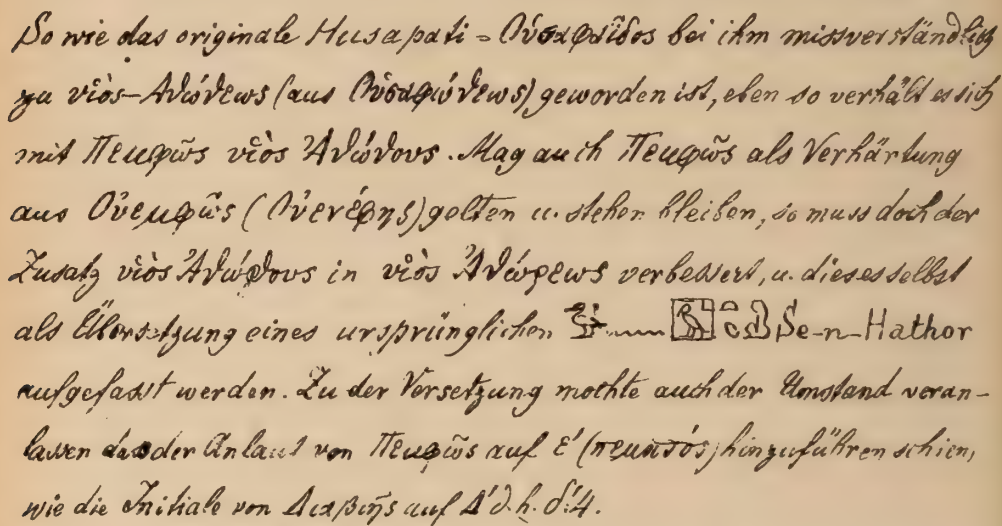 So wie das originale Husapati = Οὐσαφαῖδος bei ihm missverständlich
zu υἱὸς–Ἀθώθεως (aus Οὐσαφώθεως) geworden ist, eben so verhält es sich
mit Πεμφῶς υἱὸς Ἀθώθους. Mag auch Πεμφῶς als Verhärtung
aus Οὐεμφῶς (Οὐενέφης) gelten u. stehen bleiben, so muss doch der
Zusatz υἱὸς Ἀθώθους in υἱὸς Ἀθώρεως verbessert, u. dieses selbst
als Übersetzung eines ursprünglichen Se-n-Hathor
aufgefasst werden. Zu der Versetzung mochte auch der Umstand veran-
lassen dass der Anlaut von Πεμφῶς auf ε' (πεμπτός) hinzuführen schien,
wie die Initiale von Διαβιῆς auf Δ' d. h. δ': 4.